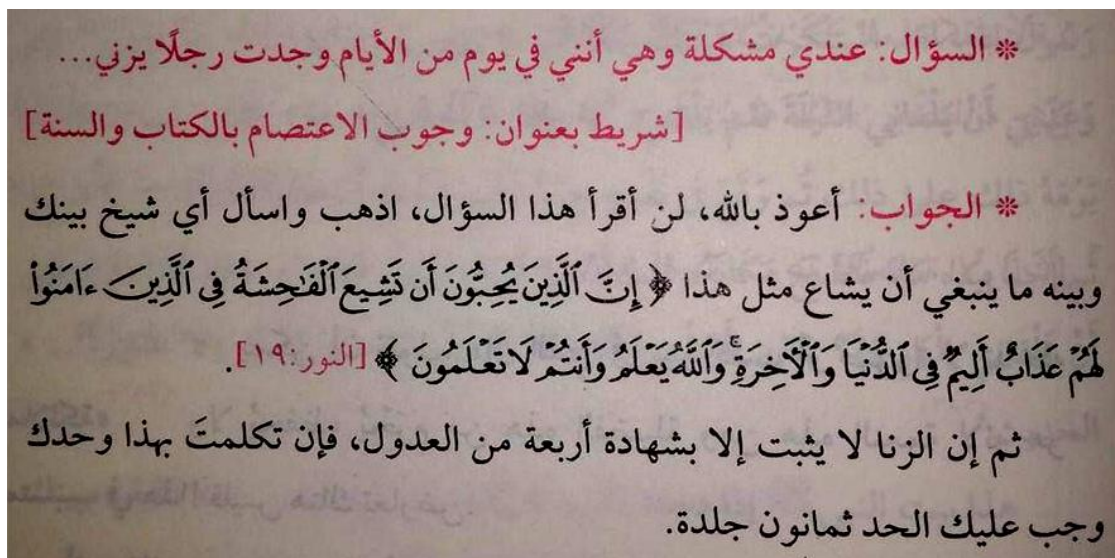 * السؤال: عندي مشكلة وهي أنني في يوم من الأيام وجدت رجلًا يزني...
[شريط بعنوان: وجوب الاعتصام بالكتاب والسنة]
* الجواب: أعوذ بالله، لن أقرأ هذا السؤال، اذهب واسأل أي شيخ بينك
وبينه ما ينبغي أن يشاع مثل هذا ﴿ إِنَّ ٱلَّذِينَ يُحِبُّونَ أَن تَشِيعَ ٱلْفَٰحِشَةُ فِى ٱلَّذِينَ ءَامَنُوا۟
لَهُمْ عَذَابٌ أَلِيمٌ فِى ٱلدُّنْيَا وَٱلْءَاخِرَةِ ۚ وَٱللَّهُ يَعْلَمُ وَأَنتُمْ لَا تَعْلَمُونَ ﴾ [النور:١٩].
ثم إن الزنا لا يثبت إلا بشهادة أربعة من العدول، فإن تكلمتَ بهذا وحدك
وجب عليك الحد ثمانون جلدة.